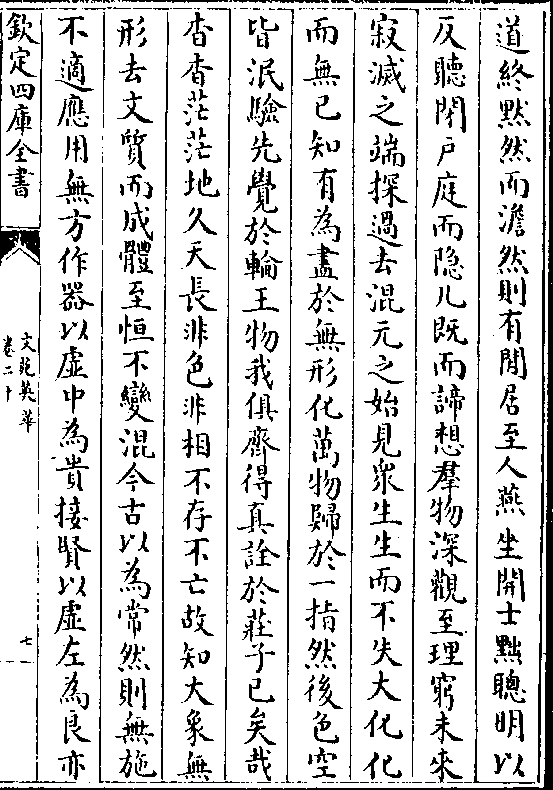 道終黙然而澹然則有閒居至人燕坐開士黜聰明以
反聽閉戸庭而隐几既而諦想羣物深觀至理窮未來
寂滅之端探過去混元之始見衆生生而不失大化化
而無已知有為盡於無形化萬物歸於一指然後色空
皆泯驗先覺於輪王物我俱齊得真詮於莊子已矣哉
杳杳茫茫地久天長非色非相不存不亡故知大象無
形去文質而成體至恒不變混今古以為常然則無施
不適應用無方作器以虚中為貴接賢以虚左為良亦
欽定四庫全書
文苑英華
卷二十
七